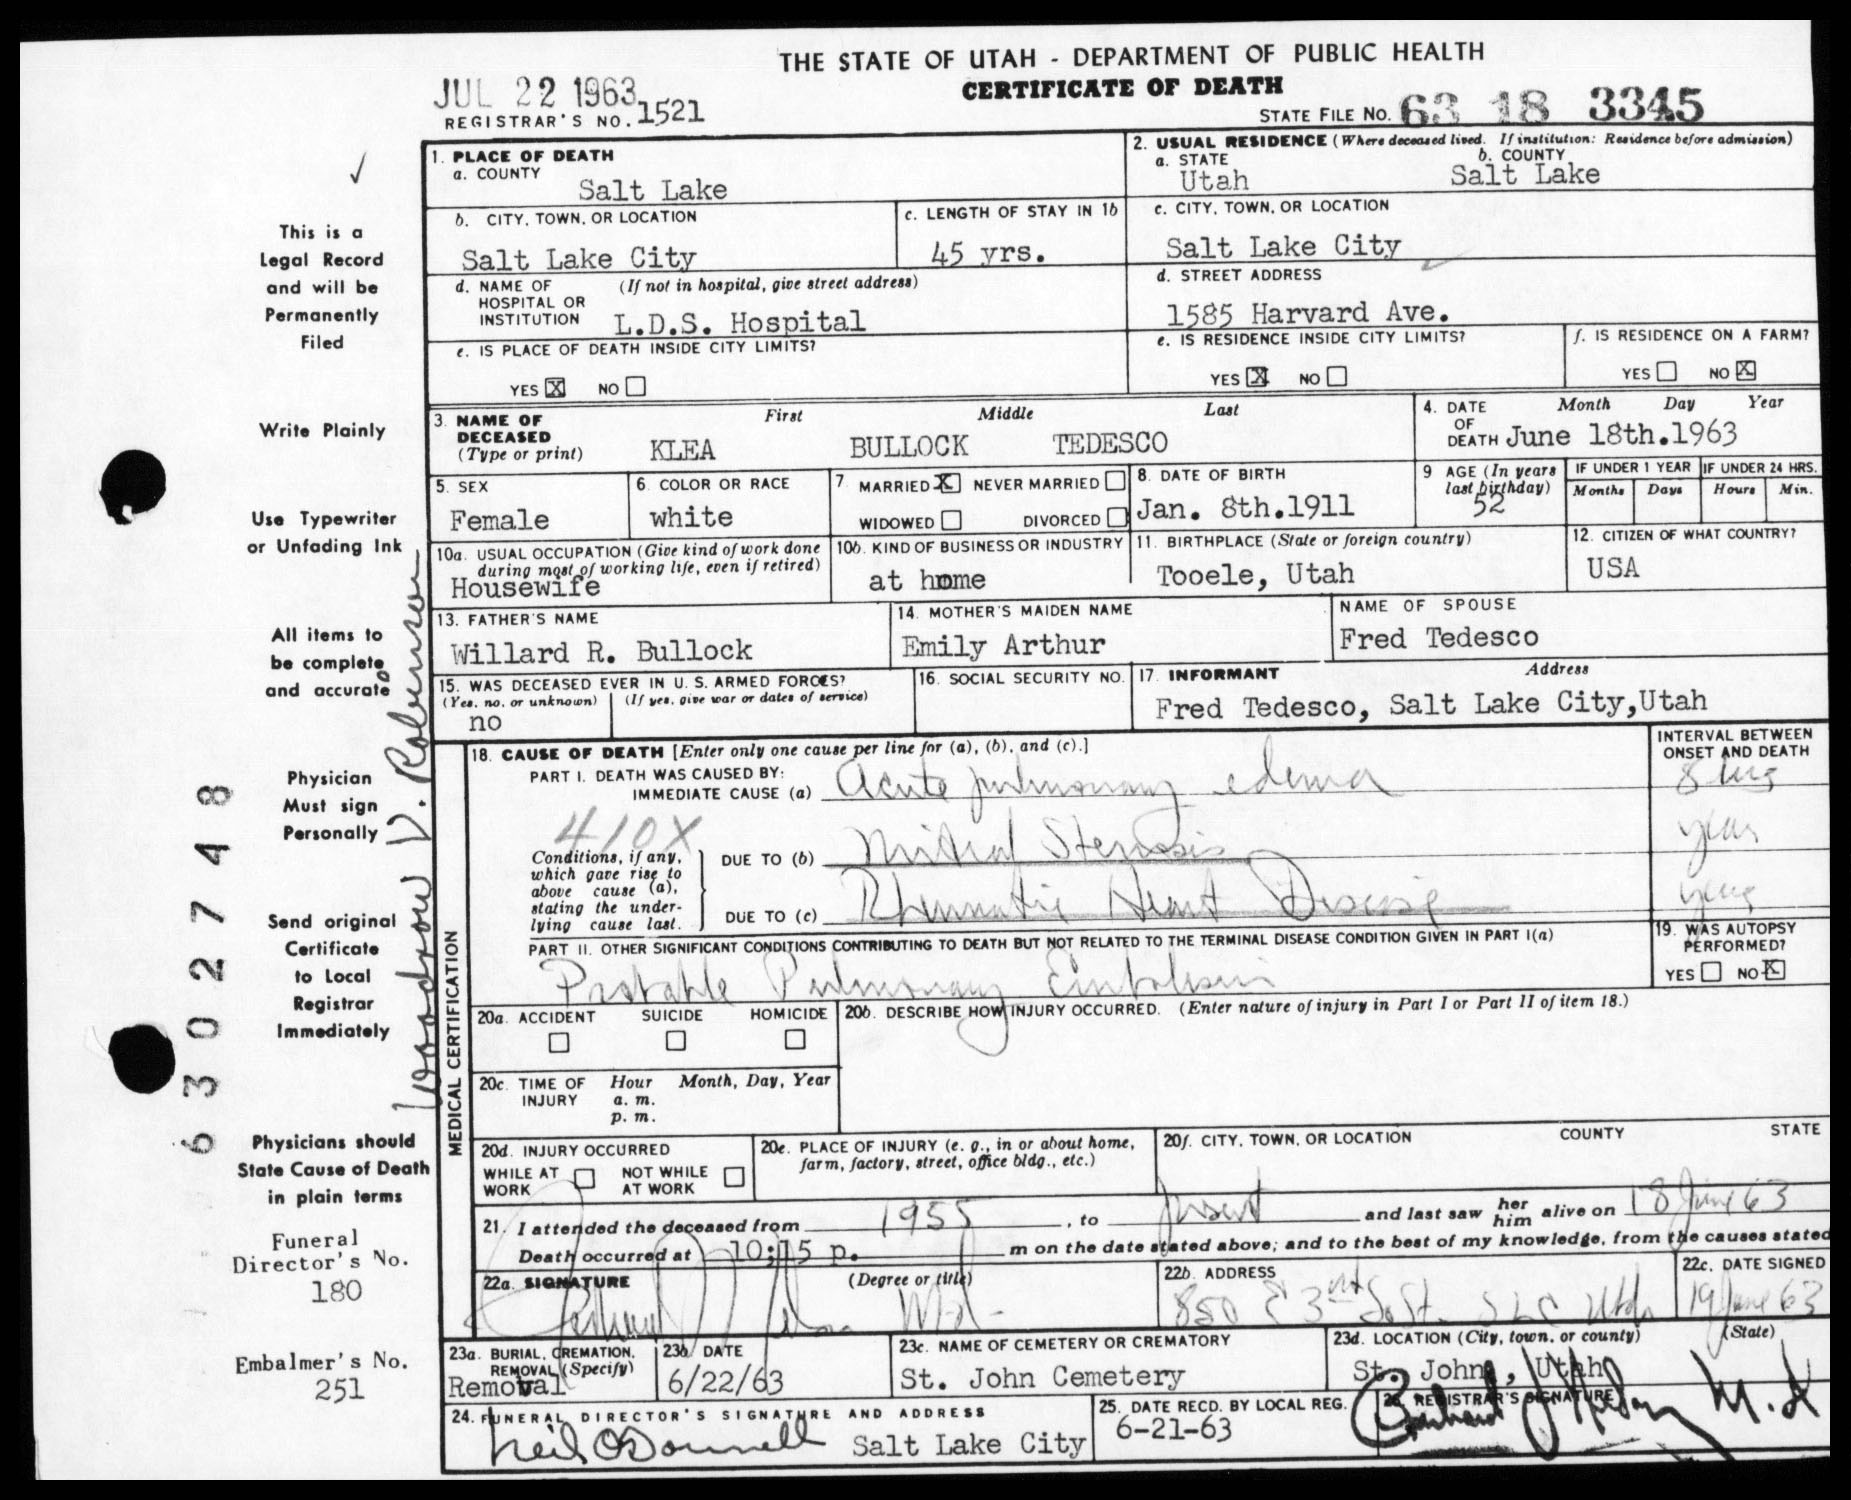 THE STATE OF UTAH - DEPARTMENT OF PUBLIC HEALTH
CERTIFICATE OF DEATH
JUL 22 1963
REGISTRAR'S NO. 1521
STATE FILE NO. 63 18 3345
1. PLACE OF DEATH
a. COUNTY
Salt Lake
2. USUAL RESIDENCE (Where deceased lived. If institution: Residence before admission)
a. STATE b. COUNTY
Utah Salt Lake
b. CITY, TOWN, OR LOCATION
Salt Lake City
c. LENGTH OF STAY IN 1b
45 yrs.
c. CITY, TOWN, OR LOCATION
Salt Lake City
d. NAME OF HOSPITAL OR INSTITUTION (If not in hospital, give street address)
L.D.S. Hospital
d. STREET ADDRESS
1585 Harvard Ave.
e. IS PLACE OF DEATH INSIDE CITY LIMITS?
YES X NO
e. IS RESIDENCE INSIDE CITY LIMITS?
YES X NO
f. IS RESIDENCE ON A FARM?
YES NO X
3. NAME OF DECEASED (Type or print)
First Middle Last
KLEA BULLOCK TEDESCO
4. DATE OF DEATH Month Day Year
June 18th.1963
5. SEX
Female
6. COLOR OR RACE
white
7. MARRIED X NEVER MARRIED
WIDOWED DIVORCED
8. DATE OF BIRTH
Jan. 8th.1911
9 AGE (In years last birthday)
52
IF UNDER 1 YEAR IF UNDER 24 HRS.
Months Days Hours Min.
10a. USUAL OCCUPATION (Give kind of work done during most of working life, even if retired)
Housewife
10b. KIND OF BUSINESS OR INDUSTRY
at home
11. BIRTHPLACE (State or foreign country)
Tooele, Utah
12. CITIZEN OF WHAT COUNTRY?
USA
13. FATHER'S NAME
Willard R. Bullock
14. MOTHER'S MAIDEN NAME
Emily Arthur
NAME OF SPOUSE
Fred Tedesco
15. WAS DECEASED EVER IN U. S. ARMED FORCES?
(Yes, no, or unknown) (If yes, give war or dates of service)
no
16. SOCIAL SECURITY NO.
17. INFORMANT Address
Fred Tedesco, Salt Lake City,Utah
MEDICAL CERTIFICATION
18. CAUSE OF DEATH [Enter only one cause per line for (a), (b), and (c).]
INTERVAL BETWEEN ONSET AND DEATH
PART I. DEATH WAS CAUSED BY:
IMMEDIATE CAUSE (a) Acute pulmonary edema 8 hrs
410X
Conditions, if any, which gave rise to above cause (a), stating the underlying cause last.
DUE TO (b) Mitral Stenosis years
DUE TO (c) Rheumatic Heart Disease years
PART II. OTHER SIGNIFICANT CONDITIONS CONTRIBUTING TO DEATH BUT NOT RELATED TO THE TERMINAL DISEASE CONDITION GIVEN IN PART I(a)
Probable Pulmonary Embolism
19. WAS AUTOPSY PERFORMED?
YES NO X
20a. ACCIDENT SUICIDE HOMICIDE
20b. DESCRIBE HOW INJURY OCCURRED. (Enter nature of injury in Part I or Part II of item 18.)
20c. TIME OF INJURY Hour Month, Day, Year
a. m.
p. m.
20d. INJURY OCCURRED
WHILE AT WORK NOT WHILE AT WORK
20e. PLACE OF INJURY (e. g., in or about home, farm, factory, street, office bldg., etc.)
20f. CITY, TOWN, OR LOCATION COUNTY STATE
21. I attended the deceased from 1955, to present and last saw her him alive on 18 June 63
Death occurred at 10;15 p. m on the date stated above; and to the best of my knowledge, from the causes stated
22a. SIGNATURE (Degree or title)
M.D.
22b. ADDRESS
850 E 3rd So. St. SLC Utah
22c. DATE SIGNED
19 June 63
23a. BURIAL, CREMATION, REMOVAL (Specify)
Removal
23b. DATE
6/22/63
23c. NAME OF CEMETERY OR CREMATORY
St. John Cemetery
23d. LOCATION (City, town, or county) (State)
St. John, Utah
24. FUNERAL DIRECTOR'S SIGNATURE AND ADDRESS
Neil O'Donnell Salt Lake City
25. DATE RECD. BY LOCAL REG.
6-21-63
26. REGISTRAR'S SIGNATURE
M.D.
This is a
Legal Record
and will be
Permanently
Filed
Write Plainly
Use Typewriter
or Unfading Ink
All items to
be complete
and accurate
Physician
Must sign
Personally
Send original
Certificate
to Local
Registrar
Immediately
Physicians should
State Cause of Death
in plain terms
Funeral
Director's No.
180
Embalmer's No.
251
Woodrow D. Robinson
6302748